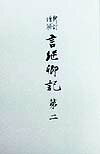 新訂
增補
言繼卿記
第二